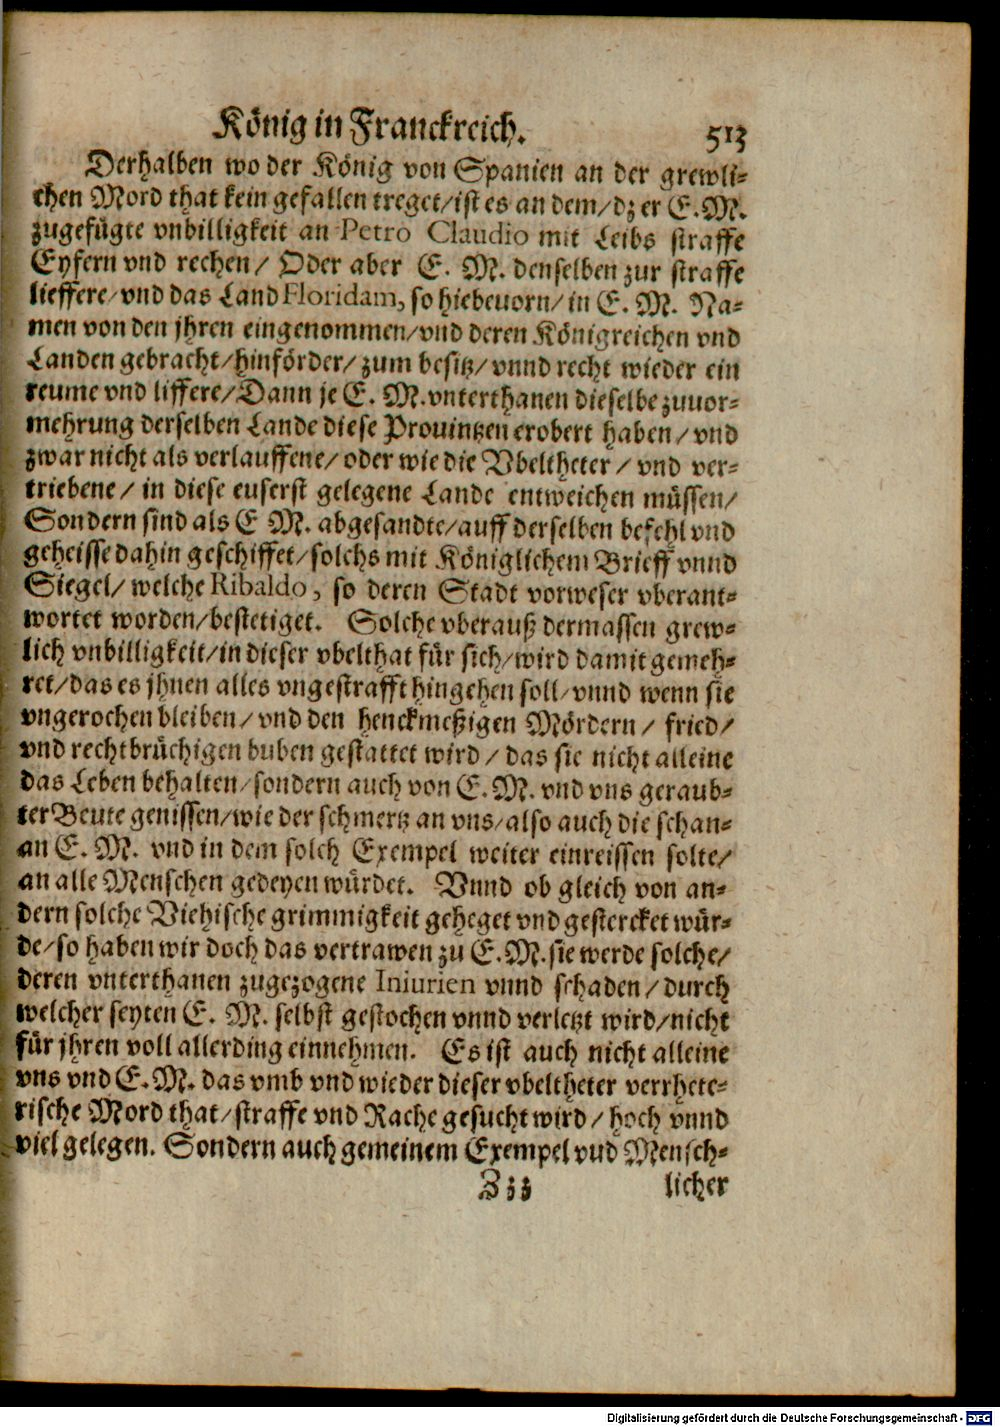 König in Franckreich. 513
Derhalben wo der König von Spanien an der grewli-
chen Mord that kein gefallen treget/ist es an dem/dz er E.M.
zugefügte vnbilligkeit an Petro Claudio mit Leibs straffe
Eyfern vnd rechen/ Oder aber E. M. denselben zur straffe
lieffere/vnd das Land Floridam, so hiebeuorn/in E. M. Na-
men von den jhren eingenommen/vnd deren Königreichen vnd
Landen gebracht/hinförder/zum besitz/vnnd recht wieder ein
reume vnd liffere/Dann je E. M.vnterthanen dieselbe zuuor-
mehrung derselben Lande diese Prouintzen erobert haben/vnd
zwar nicht als verlauffene/oder wie die Vbeltheter/vnd ver-
triebene/ in diese euserst gelegene Lande entweichen müssen/
Sondern sind als E M. abgesandte/auff derselben befehl vnd
geheisse dahin geschiffet/solchs mit Königlichem Brieff vnnd
Siegel/ welche Ribaldo, so deren Stadt vorweser vberant-
wortet worden/bestetiget. Solche vberauß dermassen grew-
lich vnbilligkeit/in dieser vbelthat für sich/wird damit gemeh-
ret/das es jhnen alles vngestrafft hingehen soll/vnnd wenn sie
vngerochen bleiben/vnd den henckmeßigen Mördern/ fried/
vnd rechtbrüchigen buben gestattet wird/das sie nicht alleine
das Leben behalten/sondern auch von E. M. vnd vns geraub-
ter Beute genissen/wie der schmertz an vns/also auch die schan-
an E. M. vnd in dem solch Exempel weiter einreissen solte/
an alle Menschen gedeyen würdet. Vnnd ob gleich von an-
dern solche Viehische grimmigkeit geheget vnd gestercket wür-
de/so haben wir doch das vertrawen zu E. M. sie werde solche/
deren vnterthanen zugezogene Iniurien vnnd schaden/durch
welcher seyten E. M. selbst gestochen vnnd verletzt wird/nicht
für jhren voll allerding einnehmen. Es ist auch nicht alleine
vns vnd E. M. das vmb vnd wieder dieser vbeltheter verrhete-
rische Mord that/straffe vnd Rache gesucht wird/hoch vnnd
viel gelegen. Sondern auch gemeinem Exempel vnd Mensch-
Zzz licher
Digitalisierung gefördert durch die Deutsche Forschungsgemeinschaft - DFG